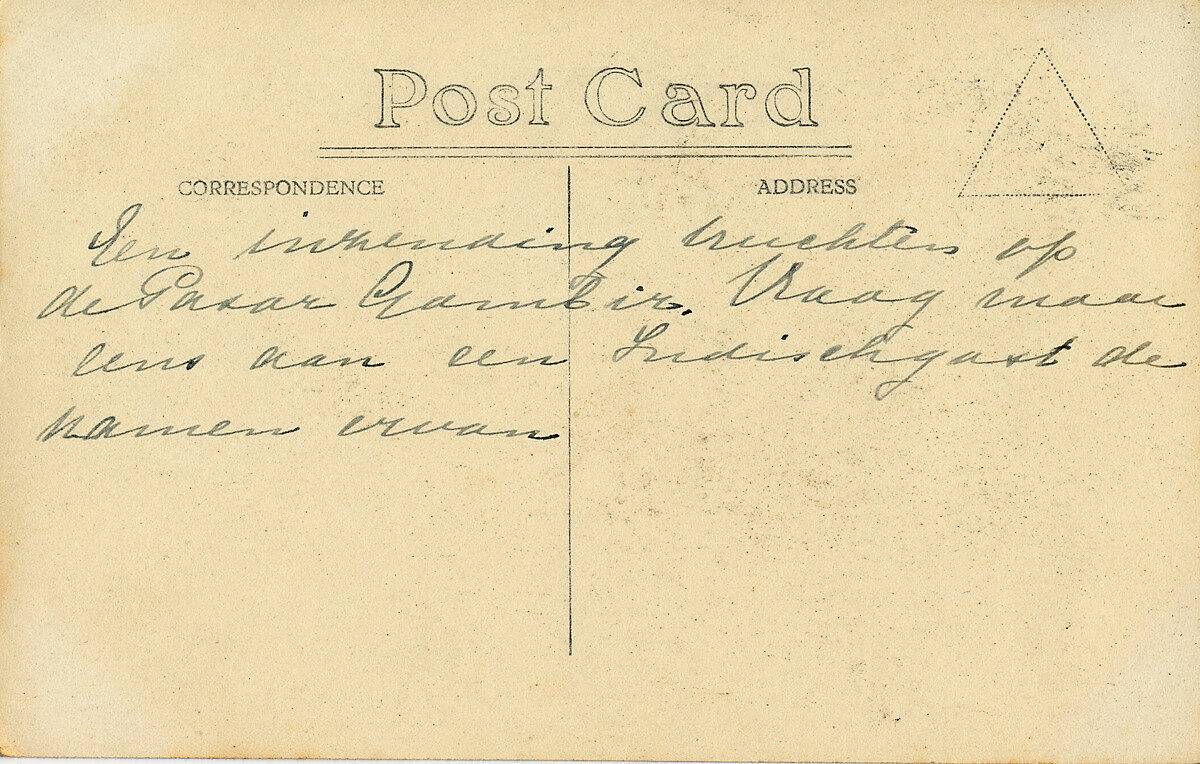 Post Card
CORRESPONDENCE
ADDRESS
Een inzending vruchten op
de Pasar Gambir. Vraag maar
eens aan een Indischgast de
namen ervan